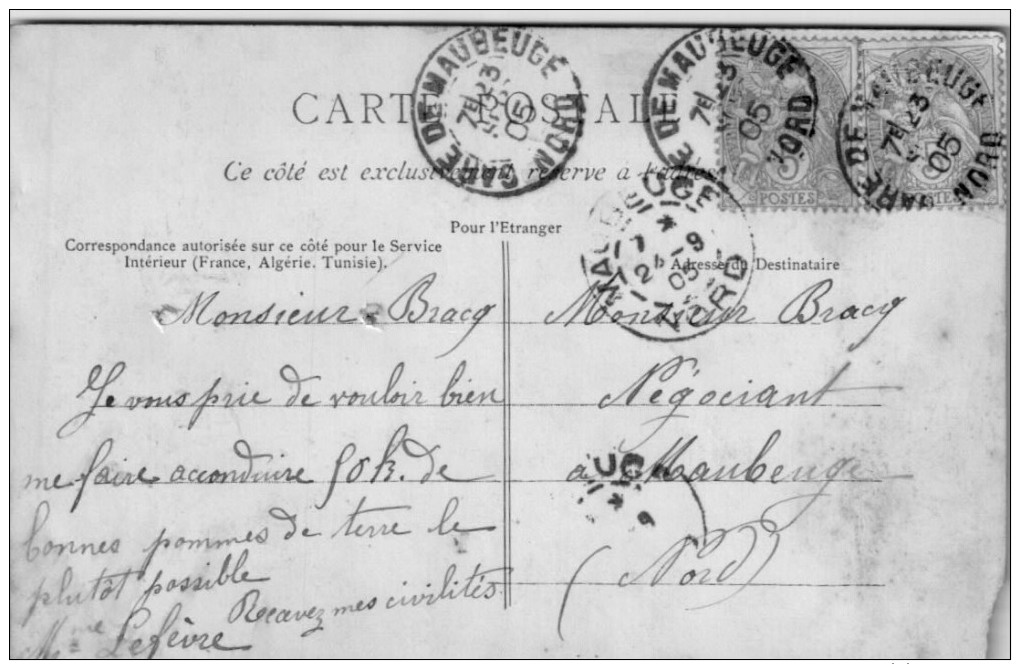 CARTE POSTALE
Ce côté est exclusivement réservé à l'adresse
GARE DE MAUBEUGE
7E
23
05
NORD
GARE DE MAUBEUGE
7E
23
05
NORD
GARE DE MAUBEUGE
7E
23
05
NORD
5
POSTES
POSTES
Pour l'Etranger
Correspondance autorisée sur ce côté pour le Service
Intérieur (France, Algérie. Tunisie).
MAUBEUGE
24
05
NORD
Adresse du Destinataire
Monsieur Bracq
Je vous prie de vouloir bien
me faire acconduire 50 k. de
bonnes pommes de terre le
plutôt possible
Recevez mes civilités
Mme Lefèvre
Monsieur Bracq
Négociant
à Maubeuge
(Nord)